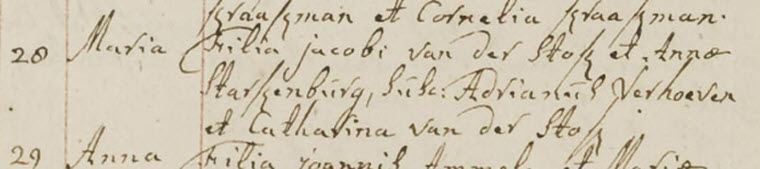 et Cornelia
28 Maria Filia jacobi van der Stok et Annæ
Starkenburg, Susc: Adrianus Verhoeven
et Catharina van der Stok
29 Anna Filia joannis et Mariæ